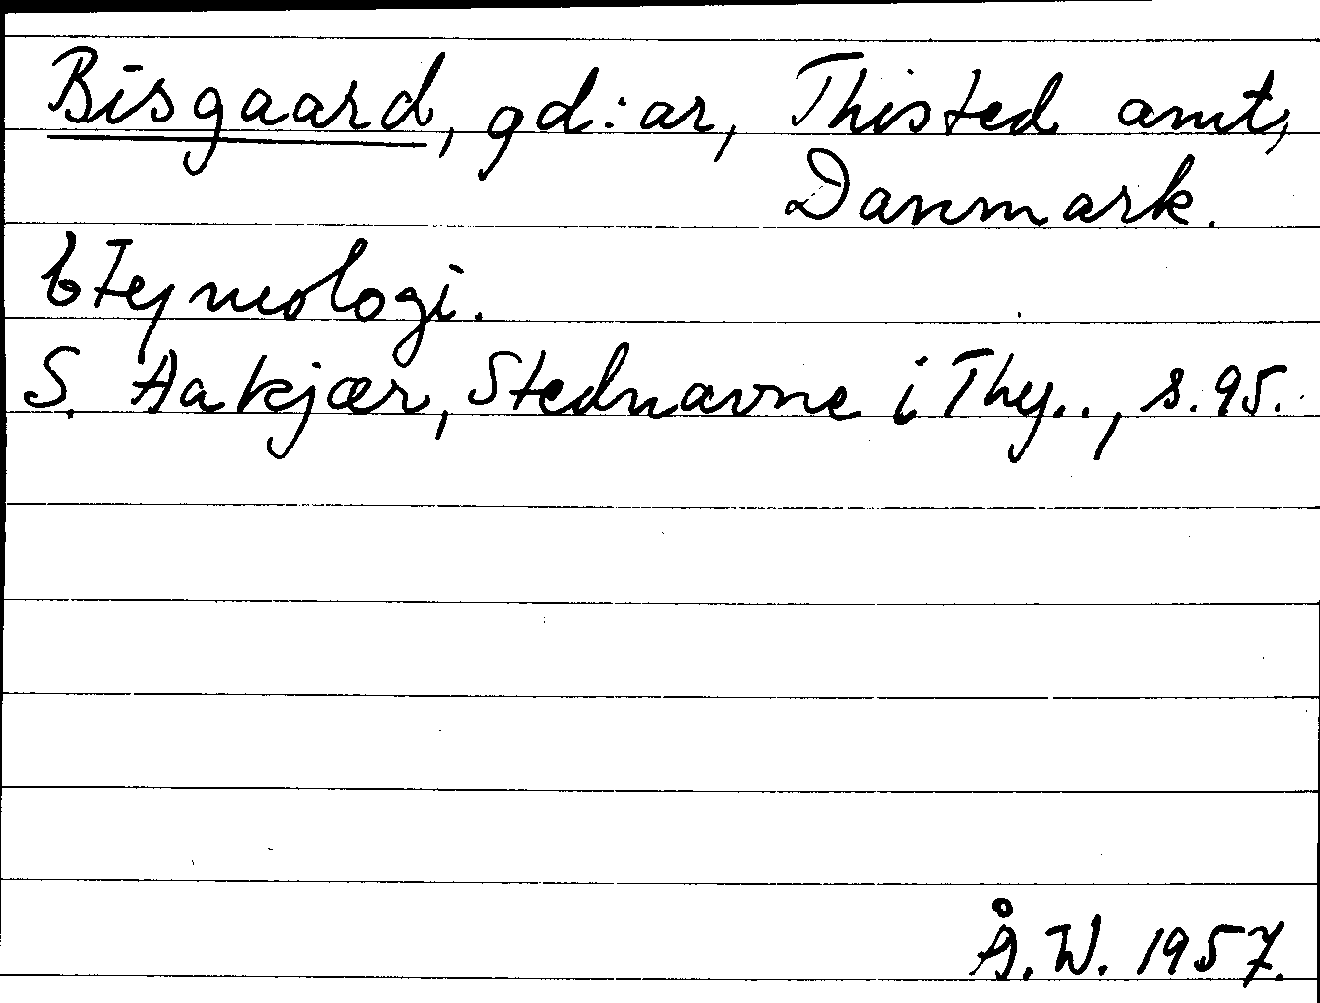 Bisgaard, gd:ar, Thisted amt,
Danmark.
Etymologi.
S. Aakjær, Stednavne i Thy.., s. 95.
Å. W. 1957.